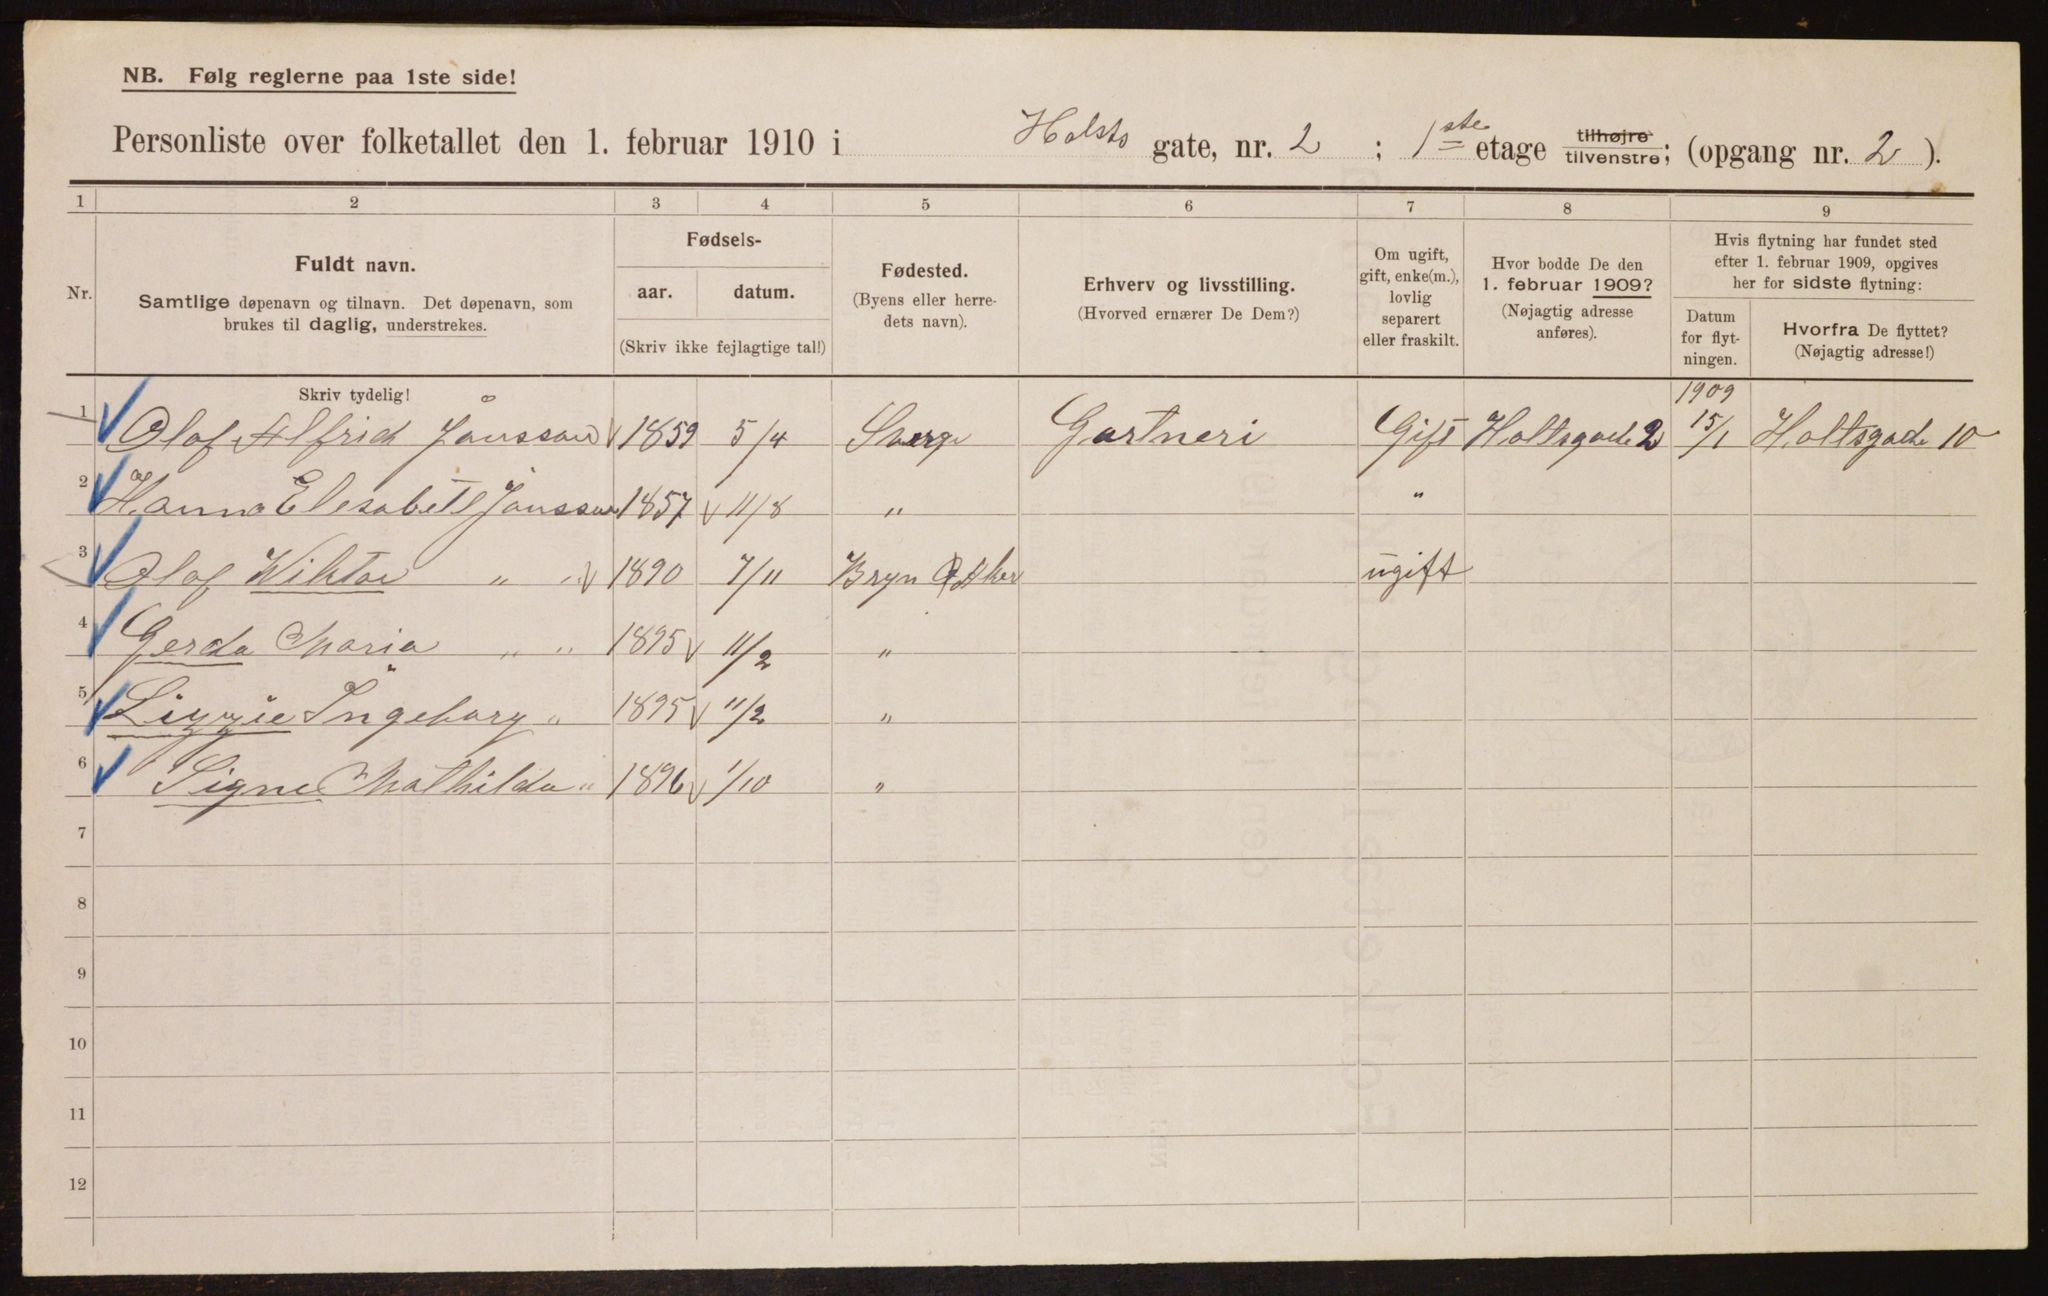 NB. Følg reglerne paa 1ste side!
Personliste over folketallet den 1. februar 1910 i Holsts gate, nr. 2 ; 1ste etage tilhøjre tilvenstre; (opgang nr. 2 ).
1 2 3 4 5 6 7 8 9
Nr.
Fuldt navn.
Samtlige døpenavn og tilnavn. Det døpenavn, som
brukes til daglig, understrekes.
Skriv tydelig!
Fødsels-
aar. datum.
(Skriv ikke fejlagtige tal!)
Fødested.
(Byens eller herre-
dets navn).
Erhverv og livsstilling.
(Hvorved ernærer De Dem?)
Om ugift,
gift, enke(m.),
lovlig
separert
eller fraskilt.
Hvor bodde De den
1. februar 1909?
(Nøjagtig adresse
anføres).
Hvis flytning har fundet sted
efter 1. februar 1909, opgives
her for sidste flytning:
Datum
for flyt-
ningen.
Hvorfra De flyttet?
(Nøjagtig adresse!)
1 Olaf Alfrid Jånsson 1859 5/4 Sverge Gartneri Gift Holtsgade 2 1909 15/1 Holtsgade 10
2 Hanna Elesabett Jonsson 1857 11/8 " "
3 Olaf Wiktor " " 1890 7/11 Bryn Aker ugift
4 Gerda Maria " " 1895 11/2 "
5 Lizzie Ingeborg " 1895 11/2 "
6 Signe Mathilda " 1896 1/10 "
7
8
9
10
11
12